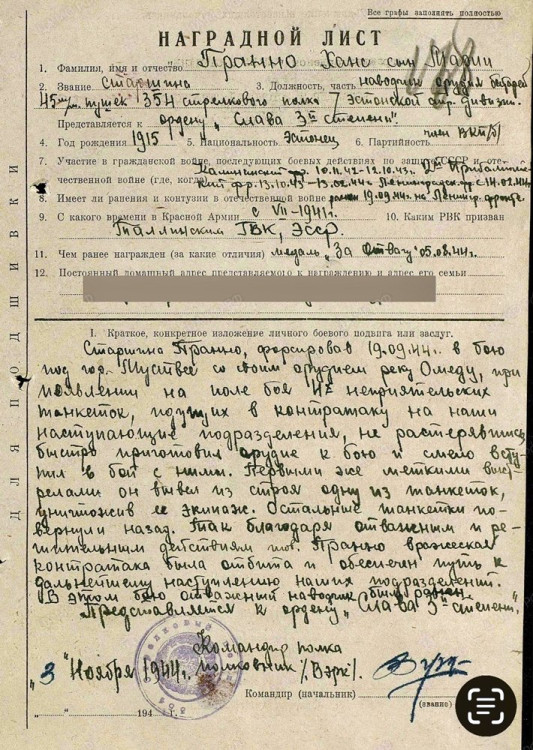 Все графы заполнять полностью
НАГРАДНОЙ ЛИСТ
1. Фамилия, имя и отчество Пранно Ханс сын Марии
2. Звание старшина 3. Должность, часть наводчик орудия батареи
45 м/м. пушек 354 стрелкового полка 7 Эстонской стр. дивизии.
Представляется к ордену „Слава 3й степени".
4. Год рождения 1915 5. Национальность Эстонец 6. Партийность член ВКП/б/
7. Участие в гражданской войне, последующих боевых действиях по защите СССР и отечественной войне (где, когда) Калининский фр. 10.11.42-12.10.43. 2й Прибалтийский
фр. 13.10.43 - 13.02.44 Ленинградск. фр. с 14.02.44
8. Имеет ли ранения и контузии в отечественной войне ранен 19.09.44 на Ленингр. фронте.
9. С какого времени в Красной Армии с VII-1941г. 10. Каким РВК призван
Таллинским ГВК, ЭССР.
11. Чем ранее награжден (за какие отличия) медаль „За Отвагу" 05.08.44г.
12. Постоянный домашний адрес представляемого к награждению и адрес его семьи
ДЛЯ ПОДШИВКИ
I. Краткое, конкретное изложение личного боевого подвига или заслуг.
Старшина Пранно, форсировав 19.09.44г. в бою
под гор. Муствее со своим орудием реку Омеду, при
появлении на поле боя неприятельских
танкеток, идущих в контратаку на наши
наступающие подразделения, не растерявшись
быстро приготовил орудие к бою и смело всту-
пил в бой с ними. Первыми же меткими выст-
релами он вывел из строя одну из танкеток,
уничтожив ее экипаж. Остальные танкетки по-
вернули назад. Так благодаря отважным и ре-
шительным действиям тов. Пранно вражеская
контратака была отбита и обеспечен путь к
дальнейшему наступлению наших подразделений.
В этом бою отважный наводчик был ранен.
Представляется к ордену „Слава 3й степени"
Командир полка
полковник /Вэрк/.
„3" Ноября 1944г.
Командир (начальник)
(звание)
„ " 194 г.